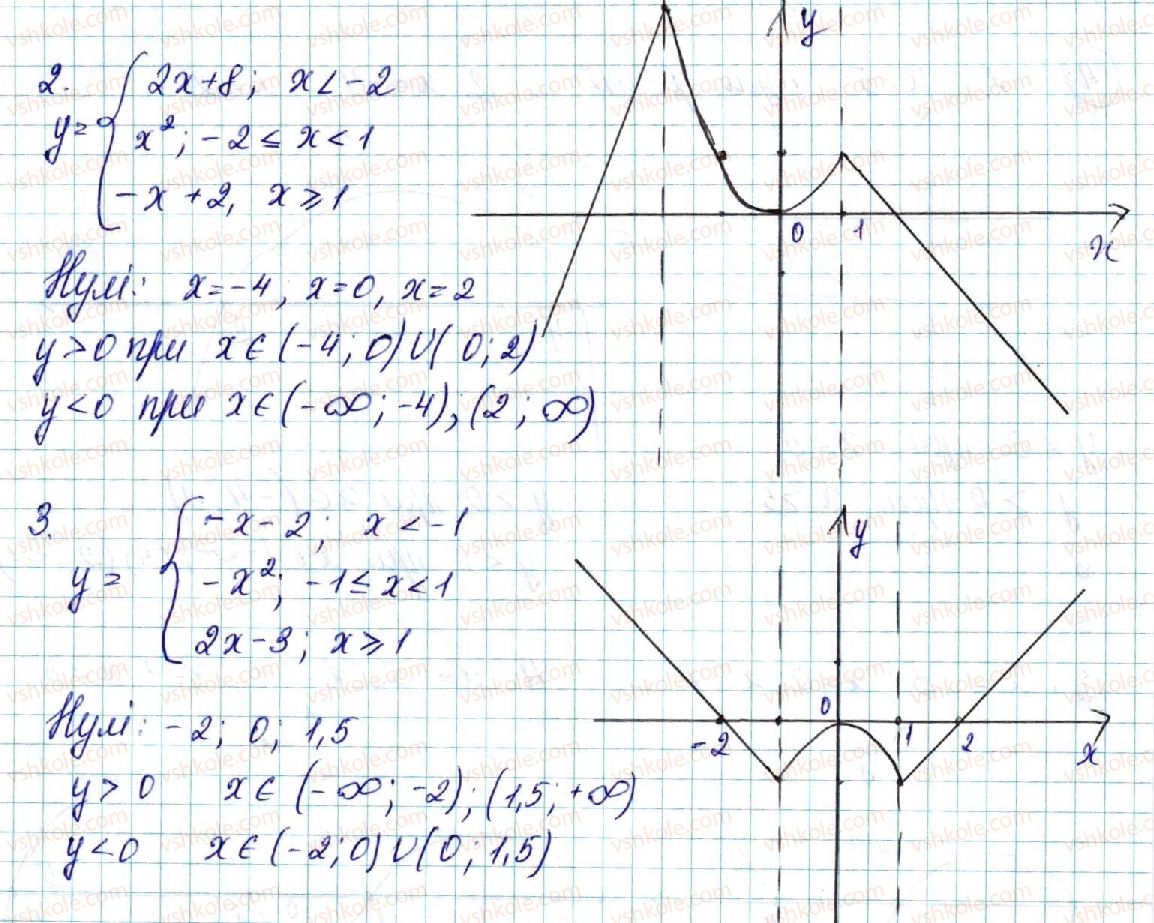 2.
y = { 2x+8; x < -2
x²; -2 ≤ x < 1
-x + 2, x ⩾ 1
Нулі: x = -4, x = 0, x = 2
y > 0 при x ∈ (-4; 0) ∪ (0; 2)
y < 0 при x ∈ (-∞; -4); (2; ∞)
y
0 1
x
3.
y = { -x - 2; x < -1
-x²; -1 ≤ x < 1
2x - 3; x ⩾ 1
Нулі: -2; 0; 1,5
y > 0 x ∈ (-∞; -2); (1,5; +∞)
y < 0 x ∈ (-2; 0) ∪ (0; 1,5)
y
0
-2 1 2 x
vshkole.com